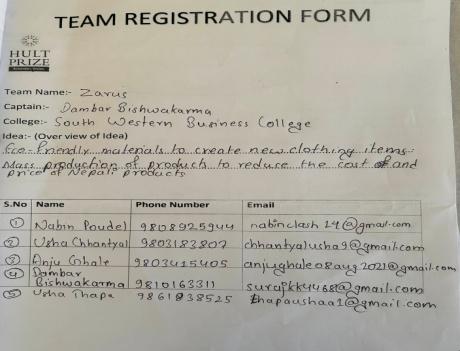 TEAM REGISTRATION FORM
HULT
PRIZE
Team Name:- Zarus
Captain:- Dambar Bishwakarma
College:- South Western Business College
Idea:- (Over view of Idea)
Eco-friendly materials to create new clothing items.
Mass production of products to reduce the cost and
price of Nepali products
S.No Name Phone Number Email
1 Nabin Poudel 9808925944 nabinclash14@gmail.com
2 Usha Chhantyal 9803183807 chhantyalusha9@gmail.com
3 Anju Ghale 9803415405 anjughale08aug2021@gmail.com
4 Dambar
Bishwakarma 9810163311 surajkk4468@gmail.com
5 Usha Thapa 9861838525 thapaushaa1@gmail.com